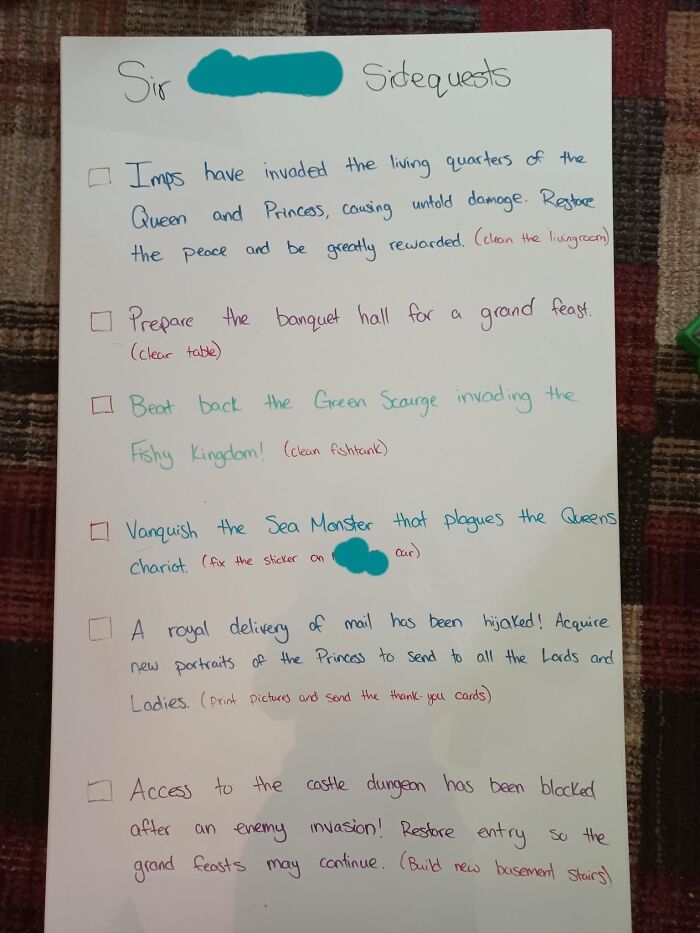 Sir Sidequests
Imps have invaded the living quarters of the
Queen and Princess, causing untold damage. Restore
the peace and be greatly rewarded. (clean the livingroom)
Prepare the banquet hall for a grand feast.
(clear table)
Beat back the Green Scourge invading the
Fishy Kingdom! (clean fishtank)
Vanquish the Sea Monster that plagues the Queens
chariot. (fix the sticker on car)
A royal delivery of mail has been hijaked! Acquire
new portraits of the Princess to send to all the Lords and
Ladies. (Print pictures and send the thank-you cards)
Access to the castle dungeon has been blocked
after an enemy invasion! Restore entry so the
grand feasts may continue. (Build new basement stairs)